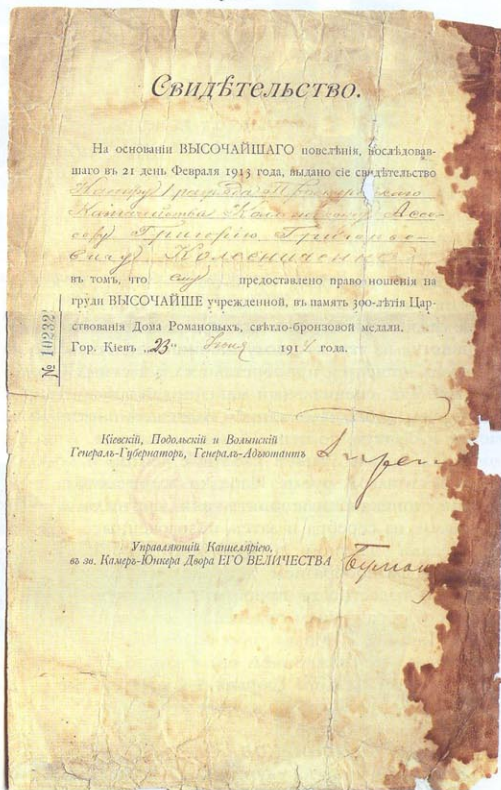 Свидѣтельство.
На основаніи ВЫСОЧАЙШАГО повелѣнія, послѣдовав-
шаго въ 21 день Февраля 1913 года, выдано сіе свидѣтельство
Казначейства Ассе-
сору Григорію Григорье-
вичу
въ томъ, что ему предоставлено право ношенія на
груди ВЫСОЧАЙШЕ учрежденной, въ память 300-лѣтія Цар-
ствованія Дома Романовыхъ, свѣтло-бронзовой медали.
Гор. Кіевъ „23" Іюня 1914 года.
№ 10232
Кіевскій, Подольскій и Волынскій
Генералъ-Губернаторъ, Генералъ-Адъютантъ
Управляющій Канцеляріею,
въ зв. Камеръ-Юнкера Двора ЕГО ВЕЛИЧЕСТВА